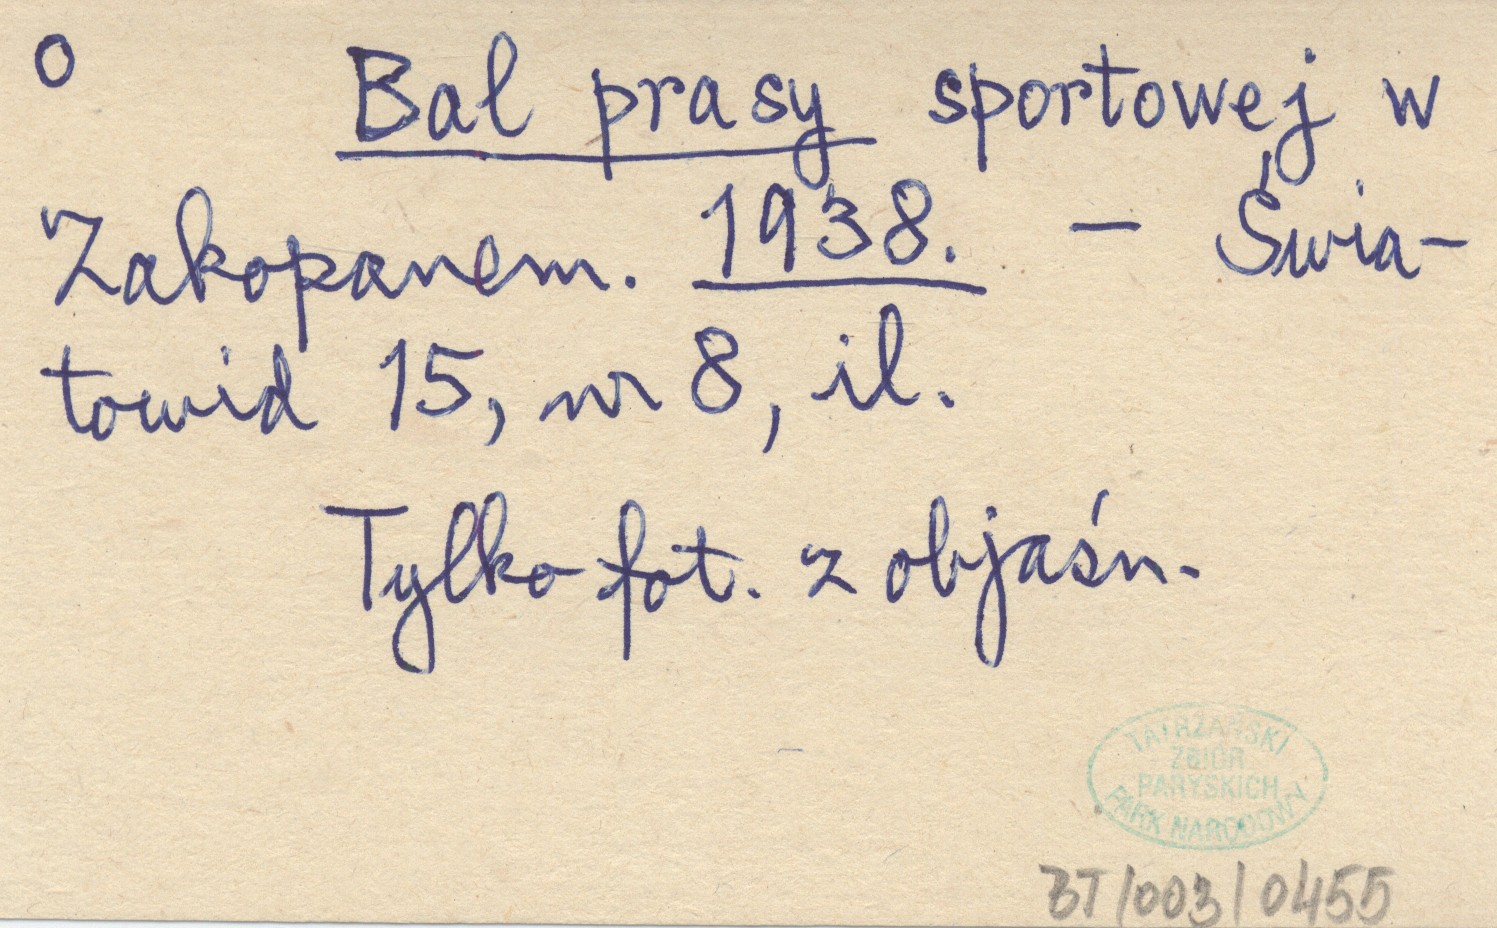 o Bal prasy sportowej w
Zakopanem. 1938. – Świa-
towid 15, nr 8, il.
Tylko fot. z objaśn.
TATRZAŃSKI
ZBIÓR
PARYSKICH
PARK NARODOWY
BT/003/0455